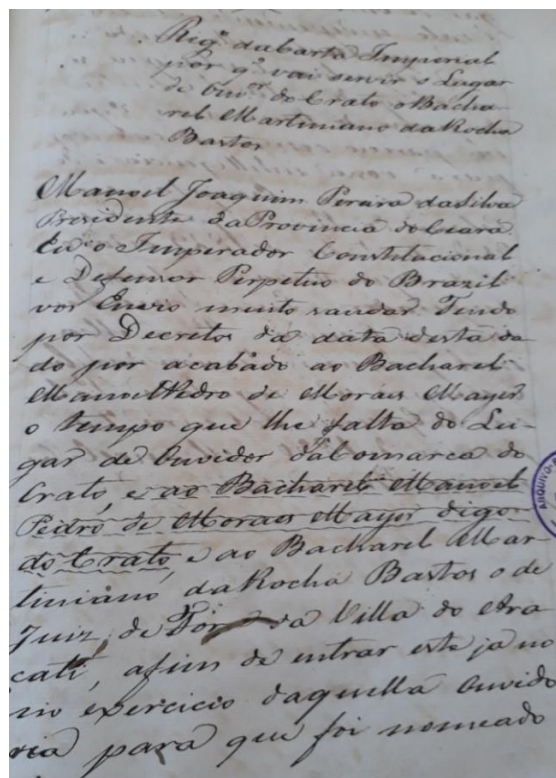 Regº da Carta Imperial
por qº vai servir o Lugar
de Ouvºr do Crato o Bacha
rel Martiniano da Rocha
Bastos
Manoel Joaquim Pereira da Silva
Presidente da Provincia do Ceará.
Eu o Imperador Constitucional
e Defensor Perpetuo do Brazil
vos Envio muito saudar. Tendo
por Decretos da data desta da
do por acabado ao Bacharel
Manoel Pedro de Moraes Mayer
o tempo que lhe falta do Lu-
gar de Ouvidor da Comarca do
Crato, e ao Bacharel Manoel
Pedro de Moraes Mayor digo
do Crato e ao Bacharel Mar-
tiniano da Rocha Bastos o de
Juiz de Fóra da Villa do Ara
cati, afim de entrar este ja no
no exercicio daquella Ouvido
ria para que foi nomeado
ARQUIVO